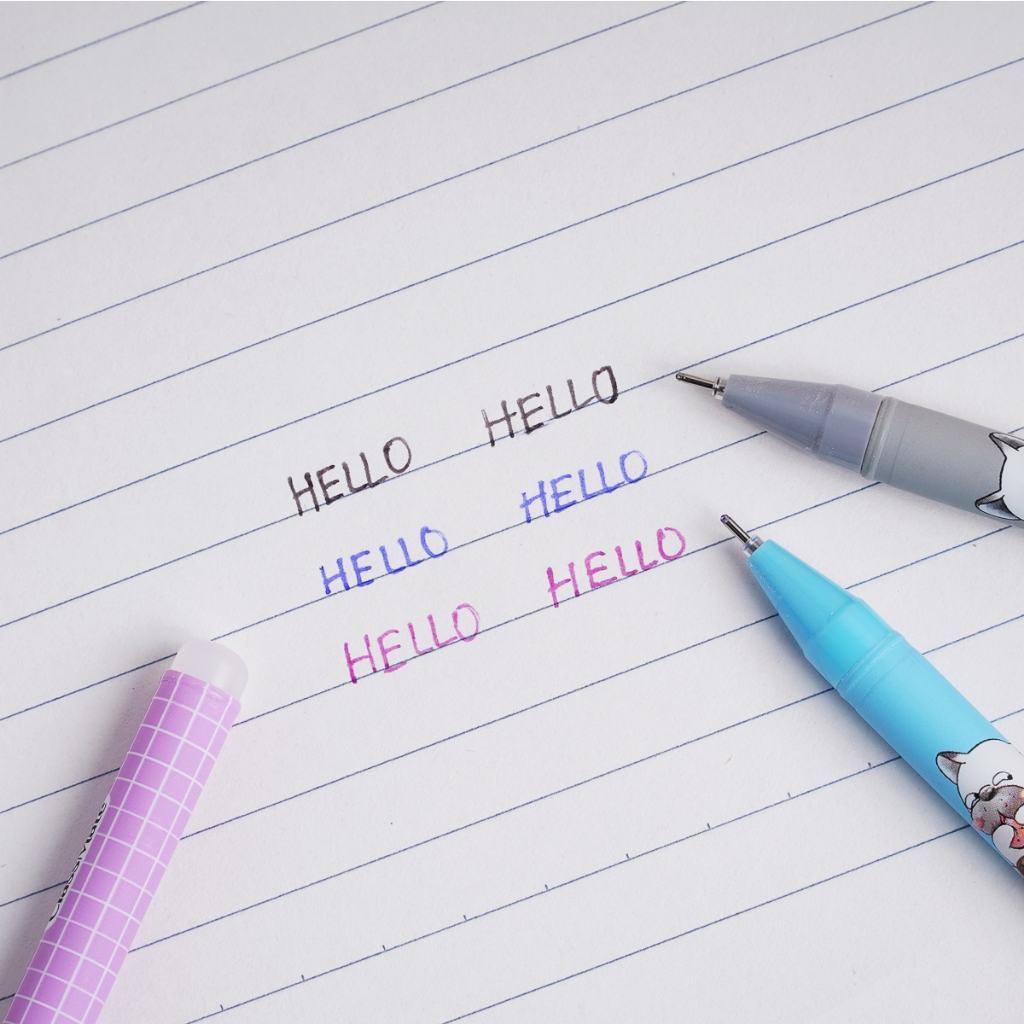 HELLO HELLO
HELLO HELLO
HELLO HELLO